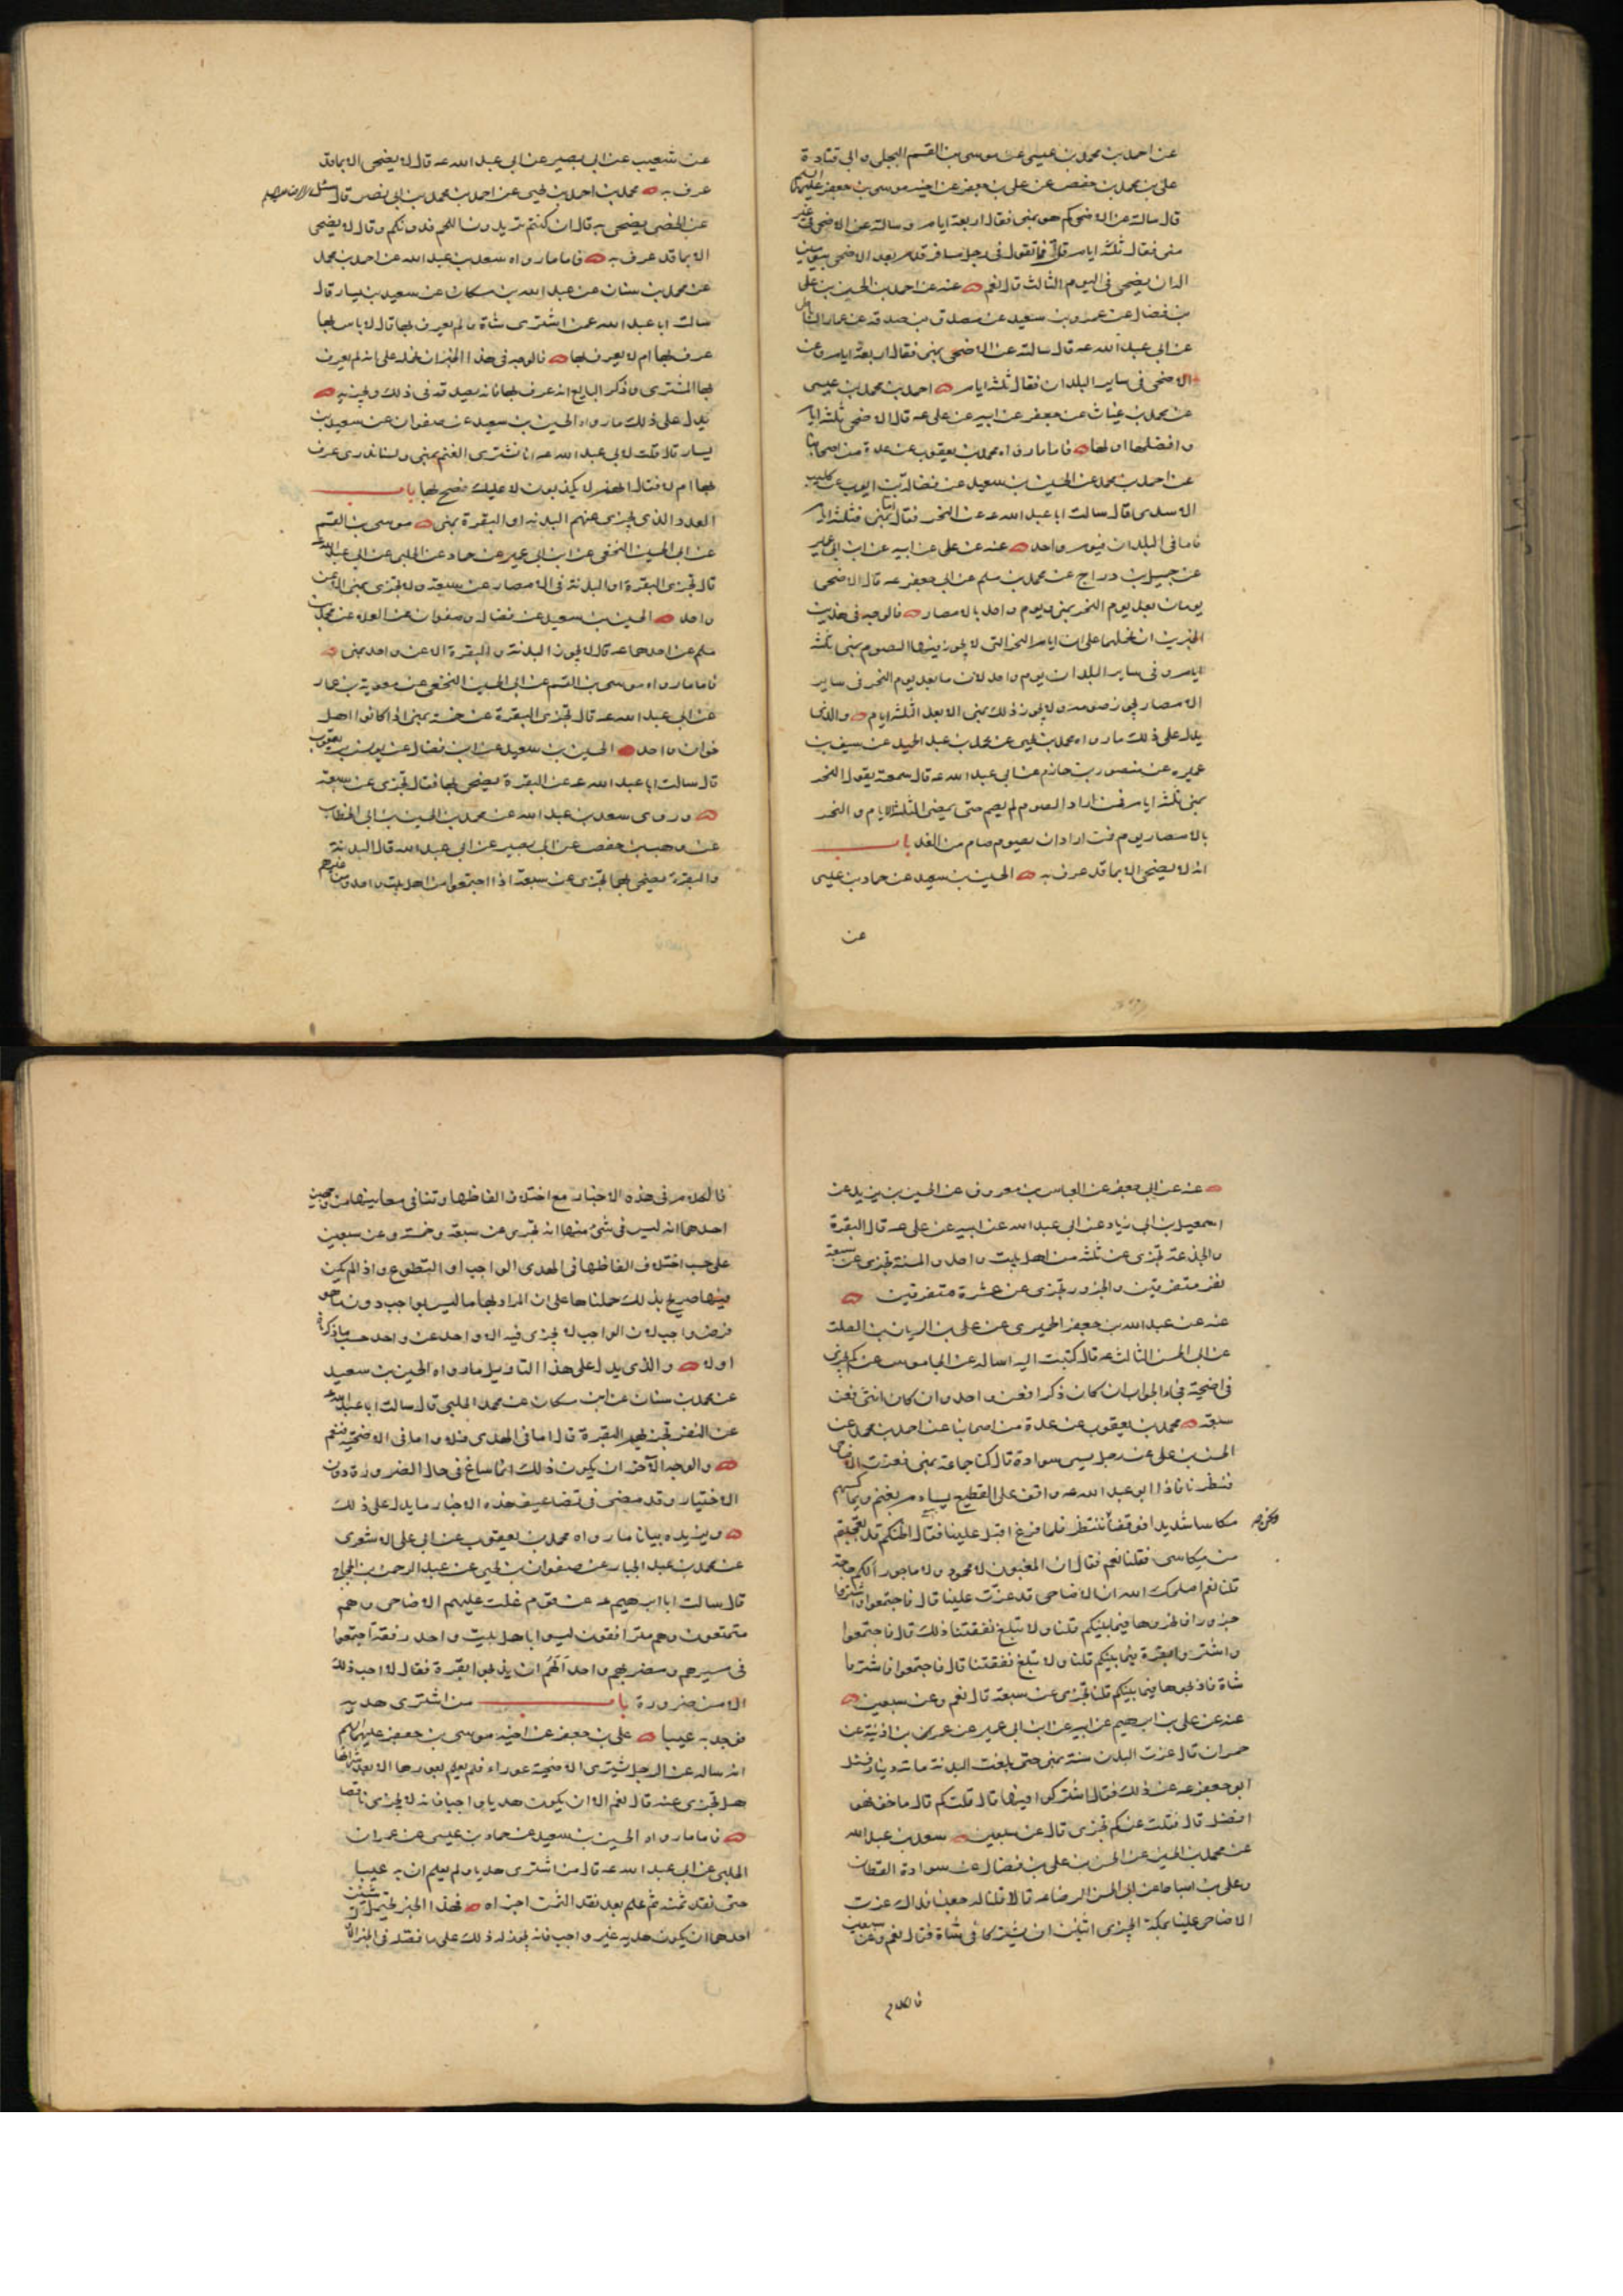 عن احمد بن محمد بن عيسى عن موسى بن القسم البجلى و ابى قتادة
على بن محمد بن حفص عن على بن جعفر عن اخيه موسى بن جعفر عليهما السلم
قال سالته عن الاضحى كم هو بمنى فقال اربعة ايام و سالته عن الاضحى فى غير
منى فقال ثلثه ايام قلت فما تقول فى رجل مسافر قدم بعد الاضحى بيومين
اله ان يضحى فى اليوم الثالث قال نعم عنه عن احمد بن الحسن بن على
بن فضال عن عمرو بن سعيد عن مصدق بن صدقه عن عمار الساباطى
عن ابى عبد الله عه قال سالته عن الاضحى بمنى فقال اربعة ايام و عن
الاضحى فى ساير البلدان فقال ثلثه ايام احمد بن محمد بن عيسى
عن محمد بن غياث عن جعفر عن ابيه عن على عه قال الاضحى ثلثه ايام
و افضلها اولها فاما ما رواه محمد بن يعقوب عن عدة من اصحابنا
عن احمد بن محمد عن الحسين بن سعيد عن فضالة بن ايوب عن كليب
الاسدى قال سالت ابا عبد الله عه عن النحر فقال اما بمنى فثلثه ايام
فاما فى البلدان فيوم واحد عنه عن على عن ابيه عن ابن ابى عمير
عن جميل بن دراج عن محمد بن مسلم عن ابى جعفر عه قال الاضحى
يومان بعد يوم النحر بمنى و يوم واحد بالامصار فالوجه فى هذين
الخبرين ان نحملهما على ان ايام النحر التى لا يجوز فيها الصوم بمنى ثلثه
ايام و فى ساير البلدان يوم واحد لان ما بعد يوم النحر فى ساير
الامصار يجوز صومه ولا يجوز ذلك بمنى الا بعد الثلثه ايام و الذى
يدل على ذلك ما رواه محمد بن يحيى عن محمد بن عبد الحميد عن سيف بن
عميره عن منصور بن حازم عن ابى عبد الله عه قال سمعته يقول النحر
بمنى ثلثه ايام فمن اراد الصوم لم يصم حتى يمضى الثلثه الايام و النحر
بالامصار يوم فمن اراد ان يصوم صام من الغد باب
انه لا يضحى الا بما قد عرف به الحسين بن سعيد عن حماد بن عيسى
عن
عن شعيب عن ابى بصير عن ابى عبد الله عه قال لا يضحى الا بما قد
عرف به محمد بن احمد بن يحيى عن احمد بن محمد بن ابى نصر قال سئل
عن الخصى يضحى به قال ان كنتم تريدون اللحم فدونكم و قال لا يضحى
الا بما قد عرف به فاما ما رواه سعد بن عبد الله عن احمد بن محمد
عن محمد بن سنان عن عبد الله بن مسكان عن سعيد بن يسار قال
سالت ابا عبد الله عمن اشترى شاة و لم يعرف بها قال لا باس بها
عرف بها ام لا يعرف بها فالوجه فى هذا الخبر ان نحمله على انه لم يعرف
بها المشترى و ذكر البايع انه عرف بها فانه يصدقه فى ذلك و يجزيه
يدل على ذلك ما رواه الحسين بن سعيد عن صفوان عن سعيد بن
يسار قال قلت لابى عبد الله عه انا نشترى الغنم بمنى و لسنا ندرى عرف
بها ام لا فقال انهم لا يكذبون لا عليك ضح بها باب
العدد الذى تجزى عنهم البدنة او البقرة بمنى موسى بن القسم
عن ابى الحسين النخعى عن ابن ابى عمير عن حماد عن الحلبى عن ابى عبد الله عه
قال تجزى البقرة او البدنة فى الامصار عن سبعة و لا تجزى بمنى الا عن
واحد الحسين بن سعيد عن فضاله و صفوان عن العلاء عن محمد بن
مسلم عن احدهما عه قال لا يجوز البدنة و البقرة الا عن واحد بمنى
فاما ما رواه موسى بن القسم عن ابى الحسين النخعى عن معوية بن عمار
عن ابى عبد الله عه قال تجزى البقرة عن خمسة بمنى اذا كانوا اهل
خوان واحد الحسين بن سعيد عن ابن فضال عن يونس بن يعقوب
قال سالت ابا عبد الله عه عن البقرة يضحى بها فقال تجزى عن سبعة
و روى سعد بن عبد الله عن محمد بن الحسين بن ابى الخطاب
عن وهيب بن حفص عن ابى بصير عن ابى عبد الله قال البدنة
و البقرة يضحى بها تجزى عن سبعة اذا اجتمعوا من اهل بيت واحد و من غيرهم
عنه عن ابى جعفر عن العباس بن معروف عن الحسين بن يزيد عن
اسمعيل بن ابى زياد عن ابى عبد الله عن ابيه عن على عه قال البقرة
و الجذعة تجزى عن ثلثه من اهل بيت واحد و المسنة تجزى عن سبعة
نفر متفرقين و الجزور تجزى عن عشرة متفرقين
عنه عن عبد الله بن جعفر الحميرى عن على بن الريان بن الصلت
عن ابى الحسن الثالث عه قال كتبت اليه اساله عن الجاموس عن كم يجزى
فى اضحية فجاء الجواب ان كان ذكرا فعن واحد و ان كان انثى فعن
سبعة محمد بن يعقوب عن عدة من اصحابنا عن احمد بن محمد عن
الحسن بن على عن رجل يسمى سوادة قال كنا جماعة بمنى فعزت الاضاحى
فنظرنا فاذا ابو عبد الله عه واقف على القطيع يساوم بغنم و يماكسهم
مكاسا شديدا فوقفنا ننتظر فلما فرغ اقبل علينا فقال اظنكم قد تعجبتم
من مكاسى فقلنا نعم فقال ان المغبون لا محمود و لا ماجور الكم حاجة
قلنا نعم اصلحك الله ان الاضاحى قد عزت علينا قال فاجتمعوا و اشتروا
جزورا فانحروها فيما بينكم قلنا و لا تبلغ نفقتنا ذلك قال فاجتمعوا
و اشتروا بقرة فيما بينكم قلنا و لا تبلغ نفقتنا قال فاجتمعوا فاشتروا
شاة فاذبحوها فيما بينكم قلنا تجزى عن سبعة قال نعم و عن سبعين
عنه عن على بن ابرهيم عن ابيه عن ابن ابى عمير عن عمر بن اذينة عن
حمران قال عزت البدن سنة بمنى حتى بلغت البدنة مائة دينار فسئل
ابو جعفر عه عن ذلك فقال اشتركوا فيها قال قلت كم قال ما خف هو
افضل قال فقلت عن كم تجزى قال عن سبعين سعد بن عبد الله
عن محمد بن الحسين عن الحسن بن على بن فضال عن سوادة القطان
و على بن اسباط عن ابى الحسن الرضا عه قالا قلنا له جعلنا فداك عزت
الاضاحى علينا بمكة افيجزى اثنين ان يشتركا فى شاة فقال نعم و عن سبعين
فالكلام
فالكلام فى هذه الاخبار مع اختلاف الفاظها و تنافى معانيها من وجهين
احدهما انه ليس فى شئ منها انه تجزى عن سبعة و خمسة و عن سبعين
على حسب اختلاف الفاظها فى الهدى الواجب او التطوع و اذا لم يكن
فيها صريح بذلك حملناها على ان المراد بها ما ليس بواجب دون ما هو
فرض واجب لان الواجب لا يجزى فيه الا واحد عن واحد حسب ما ذكرناه
اولا و الذى يدل على هذا التاويل ما رواه الحسين بن سعيد
عن محمد بن سنان عن ابن مسكان عن محمد الحلبى قال سالت ابا عبد الله عه
عن النفر تجزيهم البقرة قال اما فى الهدى فلا و اما فى الاضحية فنعم
و الوجه الآخر ان يكون ذلك انما ساغ فى حال الضرورة دون
الاختيار و قد مضى فى تضاعيف هذه الاخبار ما يدل على ذلك
و يزيده بيانا ما رواه محمد بن يعقوب عن ابى على الاشعرى
عن محمد بن عبد الجبار عن صفوان بن يحيى عن عبد الرحمن بن الحجاج
قال سالت ابا ابرهيم عه عن قوم غلت عليهم الاضاحى و هم
متمتعون و هم مترافقون ليسوا باهل بيت واحد و قد اجتمعوا
فى مسيرهم و مضربهم واحد الهم ان يذبحوا بقرة فقال لا احب ذلك
الا من ضرورة باب من اشترى هديه
فوجد به عيبا على بن جعفر عن اخيه موسى بن جعفر عليهما السلم
انه ساله عن الرجل يشترى الاضحية عوراء فلم يعلم بعورها الا بعد شرائها
هل تجزى عنه قال نعم الا ان يكون هديا واجبا فانه لا يجزى ناقصا
فاما ما رواه الحسين بن سعيد عن حماد بن عيسى عن عمران
الحلبى عن ابى عبد الله عه قال من اشترى هديا و لم يعلم ان به عيبا
حتى نقد ثمنه ثم علم بعد نقد الثمن اجزاه فهذا الخبر يحتمل شيئين
احدهما ان يكون هديه غير واجب فانه يجوز له ذلك على ما فصله فى الخبر الاول